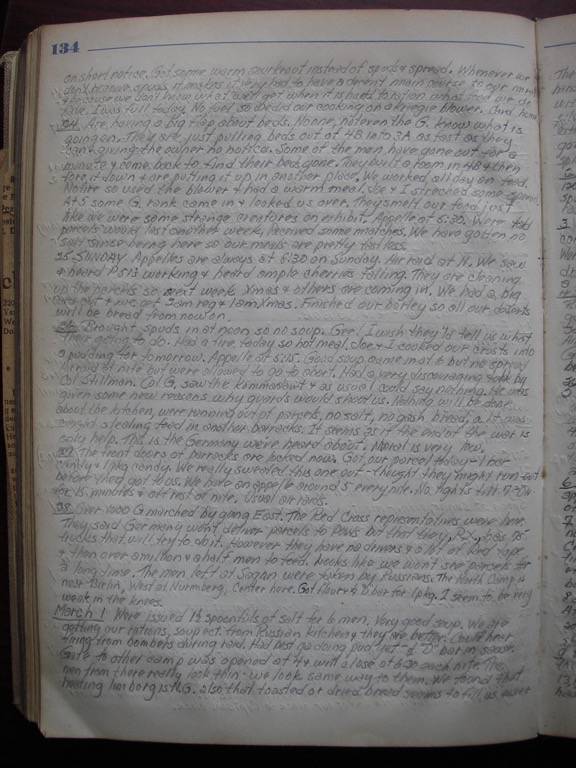 134
on short notice. Got some warm saurkraut instead of spuds & spread. Whenever we
don't peel spuds, it makes it very hard to have a decent main course to our meals
& because we don't know what we'll get when it is hard to plan what
I was full today. No fuel so we did our cooking on a kriegie blower.
24 Are having a big flap about beds. No one, not even the G. know what is
going on. They are just pulling beds out of 4B into 3A as fast as they
can & giving the owner no notice. Some of the men have gone out for a
minute & come back to find their beds gone. They built a room in 4B & then
tore it down & are putting it up in another place. We worked all day on food.
No fire so used the blower & had a warm meal. Joe & I stretched some
At 5 some G. rank came in & looked us over. They smelt our food just
like we were some strange creatures on exhibit. Appelle at 5:30. Were told
parcels would last another week. Received some matches. We have gotten no
salt since being here so our meals are pretty tasteless.
25 SUNDAY Appelles are always at 6:30 on Sunday. Air raid at N. We saw
& heard P51s working & heard ample cherries falling. They are cleaning
up the parcels so next week Xmas & others are coming in. We had a big
& we get 3 am reg & 1 am Xmas. Finished our barley so all our desserts
will be bread from now on.
26 Brought spuds in at noon, so no soup. Gee! I wish they'd tell us what
they're going to do. Had a fire today so hot meal. Joe & I cooked our crusts into
a pudding for tomorrow. Appelle at 5:15. Good soup came in at 6 but no spread
Air raid at nite but were allowed to go to abort. Had a very discouraging talk by
Col Stillman. Col G. saw the Kommandant & as usual could say nothing. He was
given some new reasons why guards would shoot us. Nothing will be done
about the kitchen, were running out of parcels, no salt, no bread, a lt was
caught stealing food in another barracks. It seems as if the end of the war is
only help. This is the Germany we've heard about. Moral is very low.
27 The front doors of barracks are locked now. Got our parcel today - 1 bar
candy & 1 pkg candy. We really sweated this one out - thought they might run out
before they got to us. We have an appelle around 5 every nite. No lights till 7. On
for 15 minutes & off rest of nite. Usual air raids.
28 Over 1000 G marched by going East. The Red Cross representatives were here.
They said Germany won't deliver parcels to POWs but that they, R.X., has 95
trucks that will try to do it. However they have no drivers & a lot of Red Tape
& then over a million & a half men to feed. Looks like we won't see parcels for
a long time. The men left at Sagan were taken by Russians. The North Camp is
near Berlin, West at Nurmberg, Center here. Got flour & D bar for 1 pkg. I seem to be very
weak in the knees.
March 1 Were issued 1½ spoonfuls of salt for 6 men. Very good soup. We are
getting our rations, soup ect. from Russian kitchen & they are better. Could hear
firing from bombers during raid. Had best pudding just put ½ "D" bar in sauce.
Gate to other camp was opened at 4 & will close at 6:30 each nite. The
men from there really look thin - we look same way to them. We found that
heating limborg is N.G. also that toasted or dried bread seems to fill us over